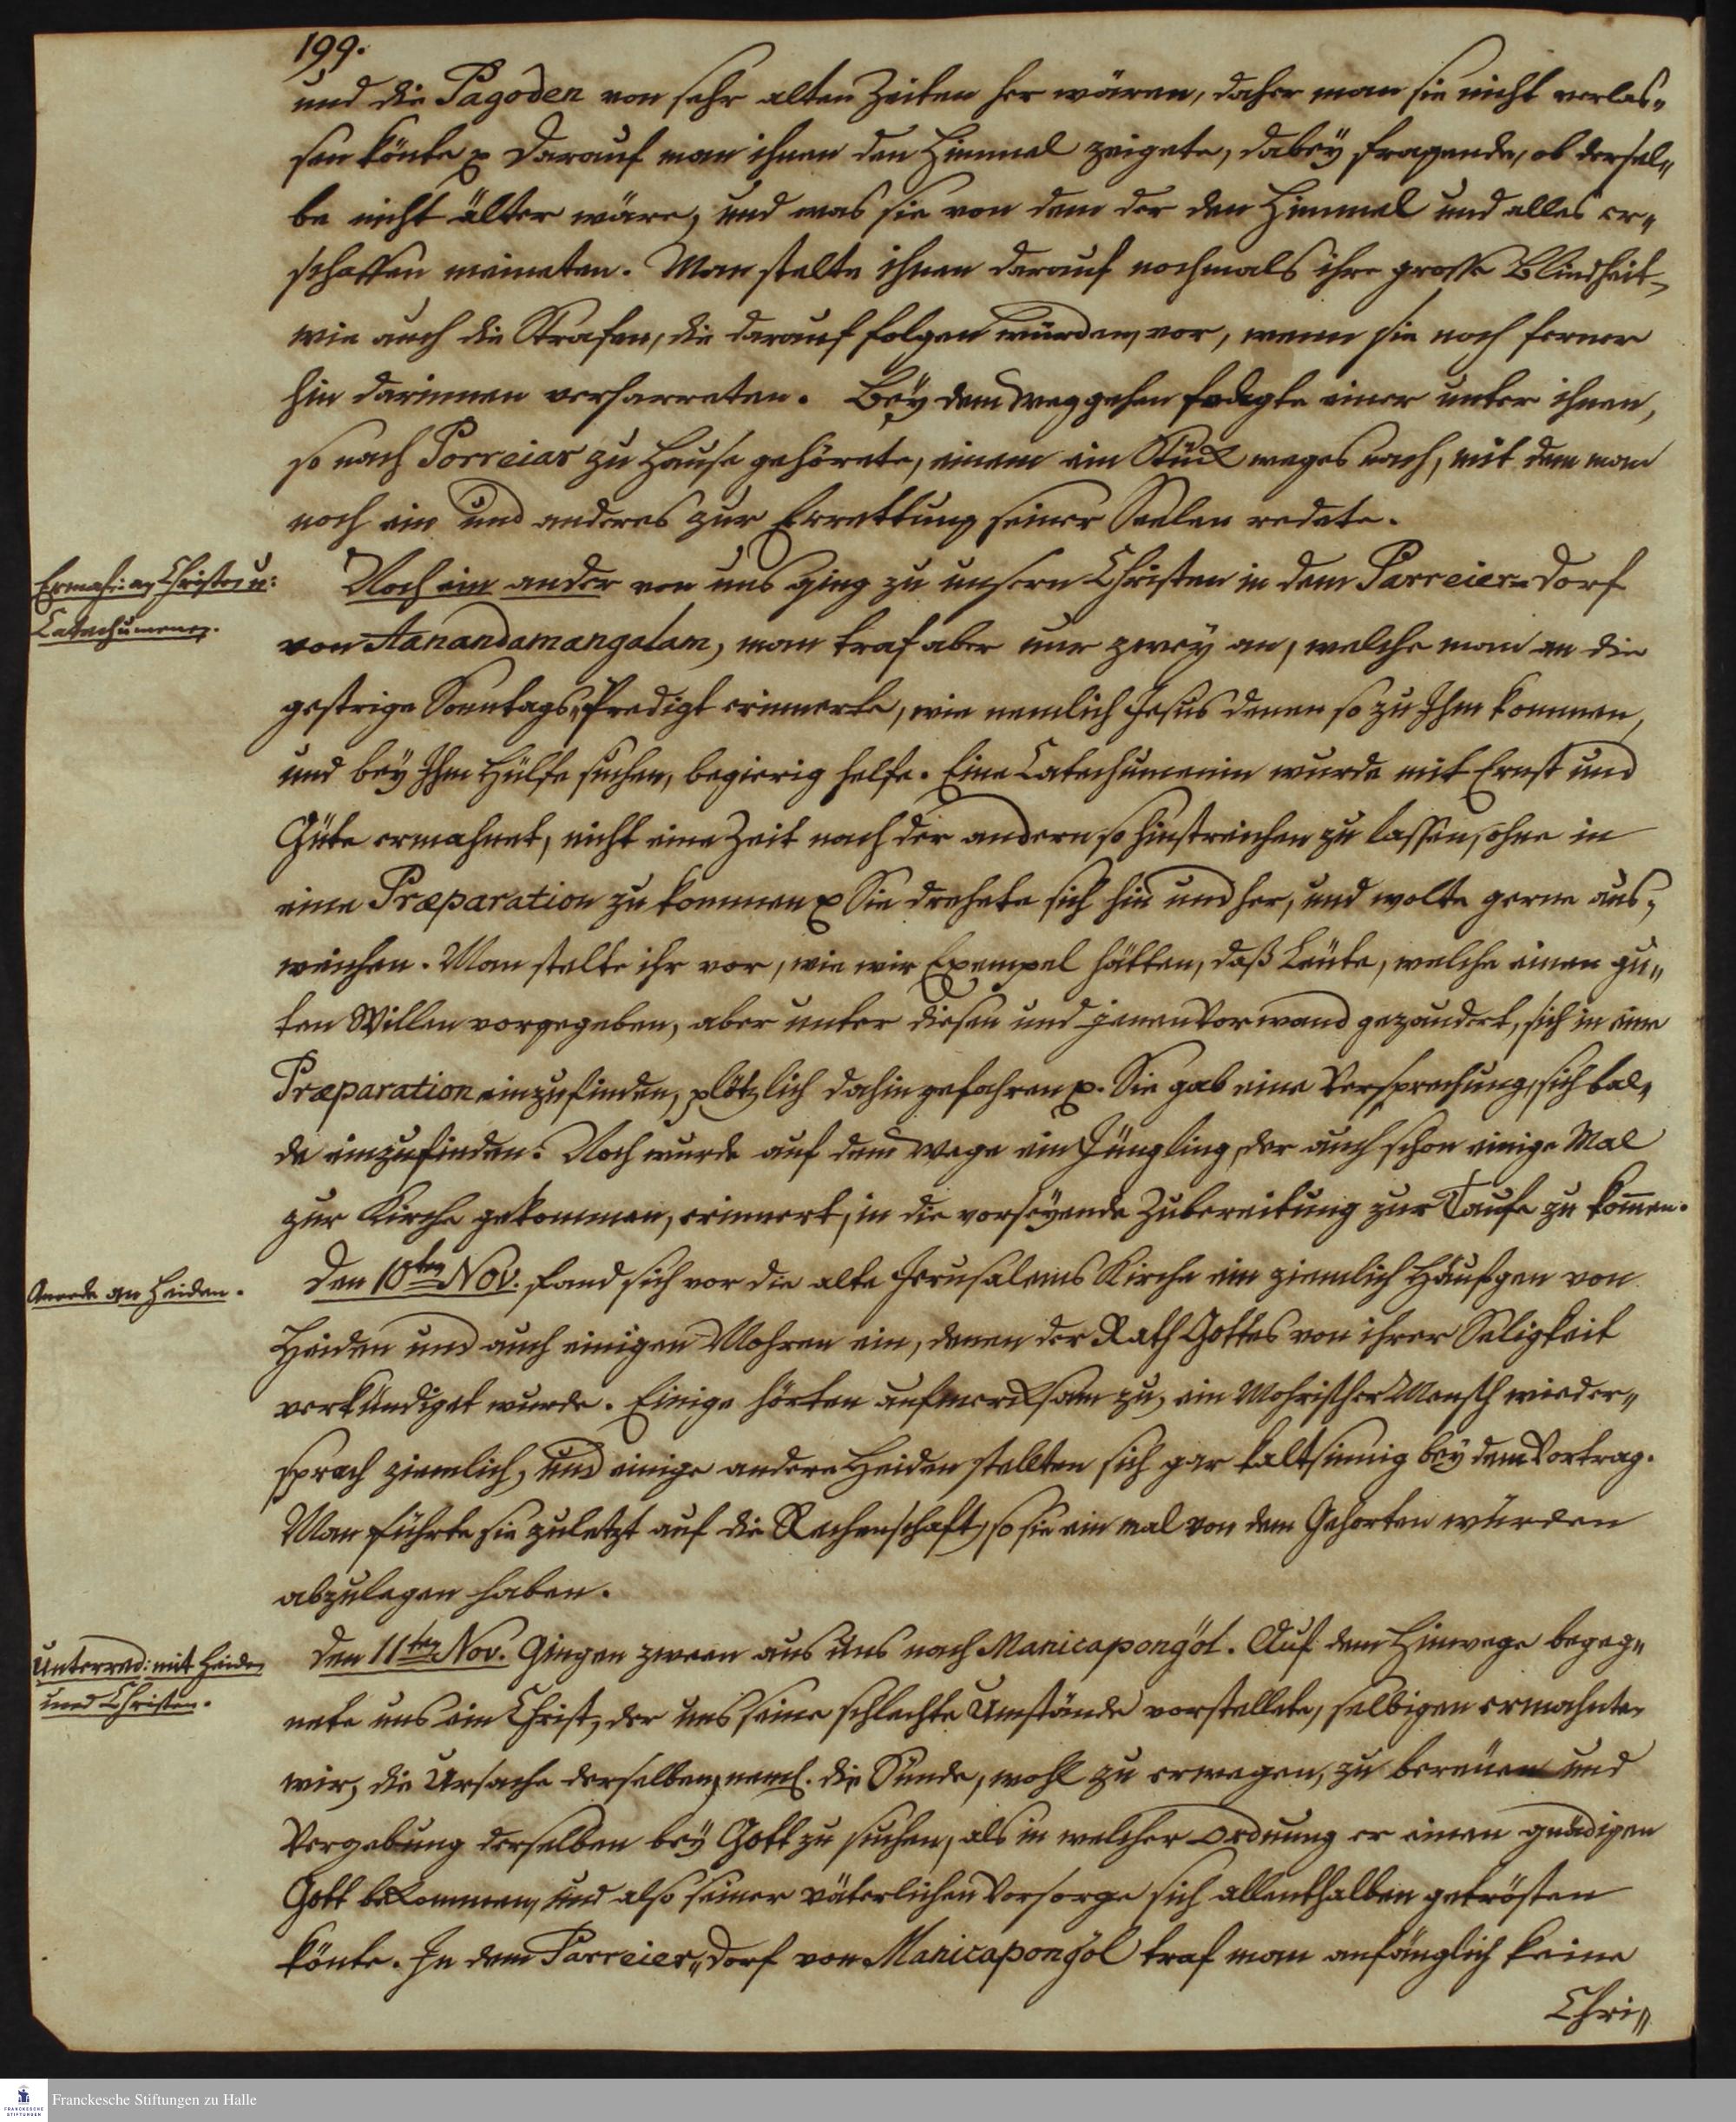 199.
und die Pagoden von sehr alten Zeiten her wären, daher man sie nicht verlas„
sen könte p Darauf man ihnen den Himmel zeigete, dabeÿ fragende, ob dersel„
be nicht älter wäre, und was sie von dem der den Himmel und alles er„
schaffen meineten. Man stelte ihnen darauf nochmals ihre grosse Blindheit,
wie auch die Strafen, die darauf folgen würden, vor, wenn sie noch ferner
hin darinnen verharreten. Beÿ dem Weggehen folgte einer unter ihnen,
so nach Porreiar zu Hause gehörete, einem ein Stück weges nach, mit dem man
noch ein und anderes zur Errettung seiner Seelen redete.
Ermah: an Christen u:
Catechumenen.
Noch ein ander von uns ging zu unsern Christen in dem Parreier-dorf
von Aanandamangalam, man traf aber nur zweÿ an, welche man an die
gestrige Sonntags„Predigt erinnerte, wie nemlich Jesus denen so zu Ihm kommen,
und beÿ Ihm Hülfe suchen, begierig helfe. Eine Catechumenin wurde mit Ernst und
Güte ermahnet, nicht eine Zeit nach der andern so hinstreichen zu lassen, ohne in
eine Præparation zu kommen p Sie drehete sich hin und her, und wolte gerne aus„
weichen. Man stelte ihr vor, wie wir Exempel hätten, daß Leute, welche einen gu„
ten Willen vorgegeben, aber unter diesen und jenen Vorwand gezaudert, sich in eine
Præparation einzufinden, plötzlich dahin gefahren p. Sie gab eine Versprechung, sich bal„
de einzufinden. Noch wurde auf dem Wege ein Jüngling, der auch schon einige Mal
zur Kirche gekommen, erinnert, in die vorseÿende Zubereitung zur Taufe zu kom̄en.
Anrede an Heiden.
Den 10ten Nov. fand sich vor die alte Jerusalems Kirche ein ziemlich Häufgen von
Heiden und auch einigen Mohren ein, denen der Rath Gottes von ihrer Seligkeit
verkündiget wurde. Einige hörten aufmercksam zu, ein Mohrischer Mensch wieder„
sprach ziemlich, und einige andere Heiden stellten sich gar kaltsinnig beÿ dem Vortrag.
Man führte sie zuletzt auf die Rechenschaft, so sie ein mal von dem Gehörten würden
abzulegen haben.
Unterred: mit Heiden
und Christen.
Den 11ten Nov. Gingen zween aus uns nach Manicapongöl. Auf dem Hinwege begeg„
nete uns ein Christ, der uns seine schlechte Umstände vorstellete, selbigen ermahnten
wir, die Ursache derselben, neml. die Sünde, wohl zu erwegen, zu bereuen und
Vergebung derselben beÿ Gott zu suchen, als in welcher Ordnung er einen gnädigen
Gott bekommen, und also seiner väterlichen Vorsorge sich allenthalben getrösten
könte. In dem Parreier„dorf von Manicapongöl traf man anfänglich keine
Chri„
Franckesche Stiftungen zu Halle
FRANCKESCHE
STIFTUNGEN